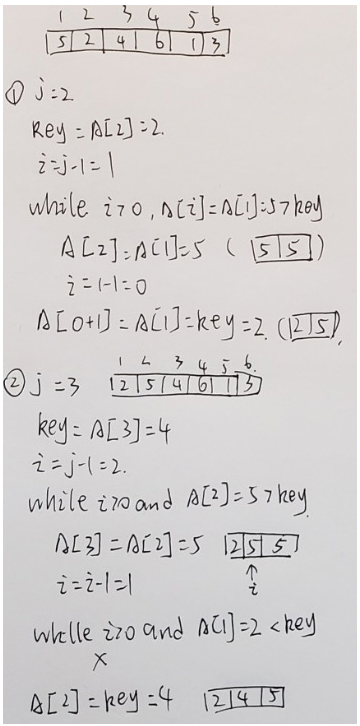 1 2 3 4 5 6
5 2 4 6 1 3
① j=2
Key = A[2]=2.
i=j-1=1
while i>0, A[i]=A[1]=5>key
A[2]=A[1]=5 ( 5 5 )
i=1-1=0
A[0+1]=A[1]=key=2. ( 2 5 ).
1 2 3 4 5 6.
② j=3 2 5 4 6 1 3
key=A[3]=4
i=j-1=2.
while i>0 and A[2]=5>key.
A[3]=A[2]=5 2 5 5
i=i-1=1 ↑
i
while i>0 and A[1]=2<key
×
A[2]=key=4 2 4 5